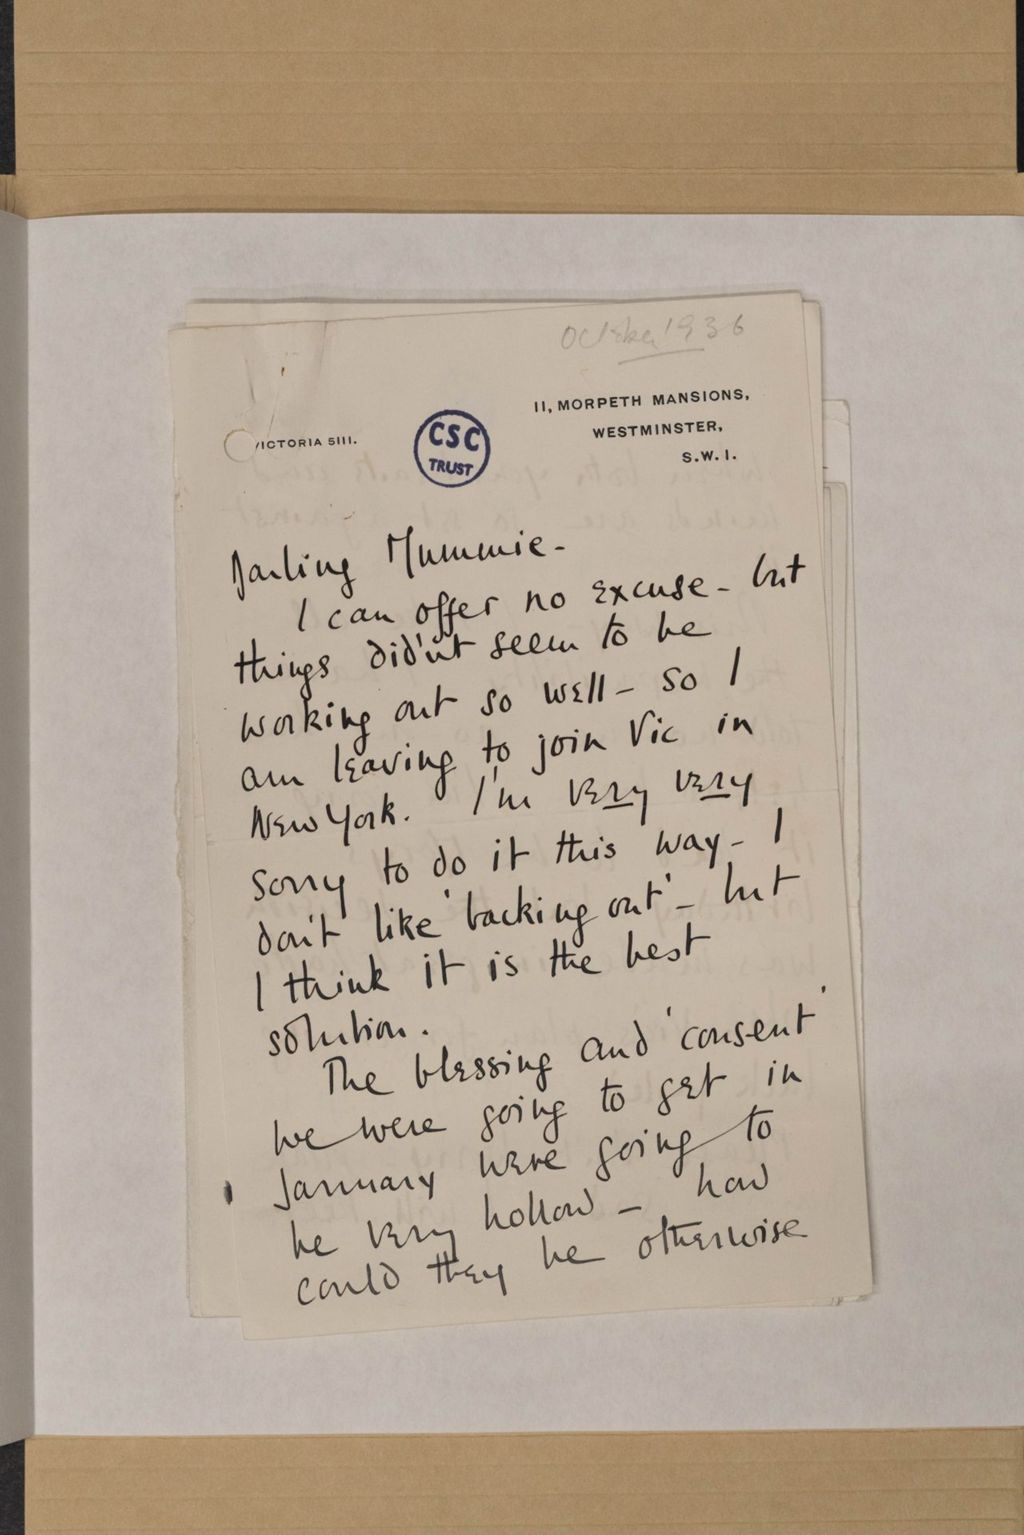 October 1936
VICTORIA 5111.
CSC
TRUST
11, MORPETH MANSIONS,
WESTMINSTER,
S.W.1.
Darling Mummie -
I can offer no excuse - but
things did'nt seem to be
working out so well - so I
am leaving to join Vic in
New York. I'm very very
sorry to do it this way - I
don't like 'backing out' - but
I think it is the best
solution.
The blessing and 'consent'
we were going to get in
January were going to
be very hollow - how
could they be otherwise